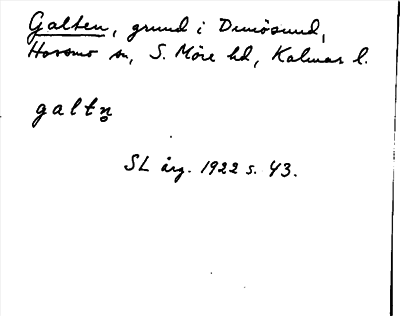 Galten, grund i Dunösund,
Hossmo sn, S. Möre hd, Kalmar l.
galtn̥
SL årg. 1922 s. 43.